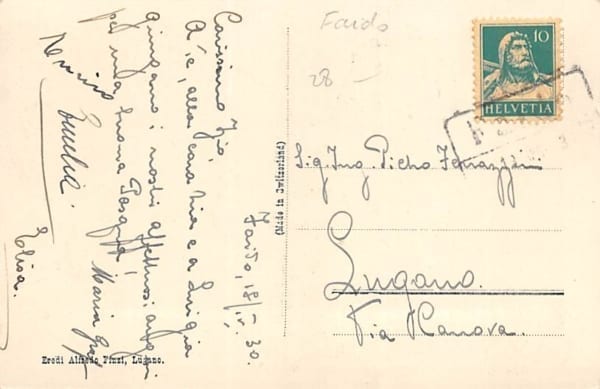 Faido
28 -
10
HELVETIA
Faido, 18/IV. 30.
Carissimo Zio
A te, alla cara Zia e a Luigia
giungano i nostri affettuosi auguri
per una buona Pasqua,
Maria
Emilia.
Elisa.
Sig. Ing. Pietro Ferrazzini
Lugano.
Via Canova.
(Made in Switzerland)
Eredi Alfredo Finzi, Lugano.